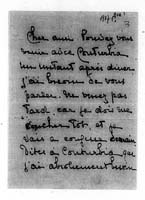 Cher ami Pouvez vous
venir avec
un instant après diner
j'ai besoin de vous
parler. Ne venez pas
tard car je dois me
coucher tôt, et
vais à
Dites à que
j'ai absolument besoin